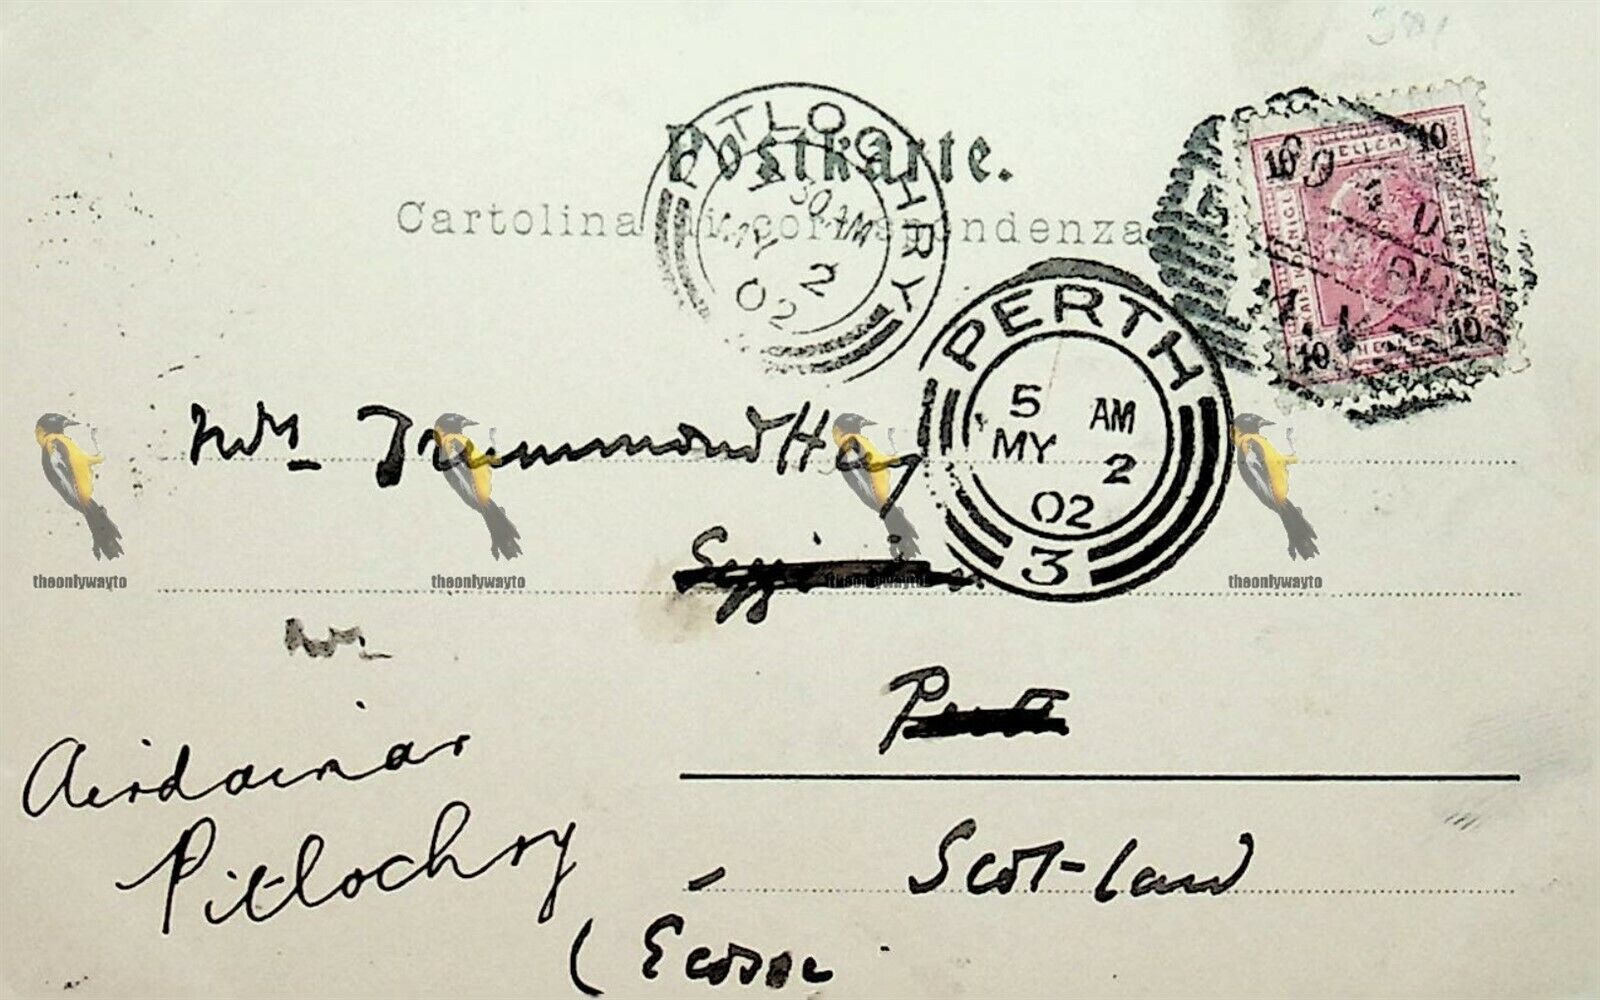 Postkarte.
Cartolina di corrispondenza
PITLOCHRY
30 AM
MY 2
02
PERTH
5 AM
MY 2
02
3
10 HELLER 10
10 HELLER 10
Mrs Drummond Hay
Perth
Airdaniar
Pitlochry
Scotland
(Ecosse
theonlywayto theonlywayto theonlywayto theonlywayto